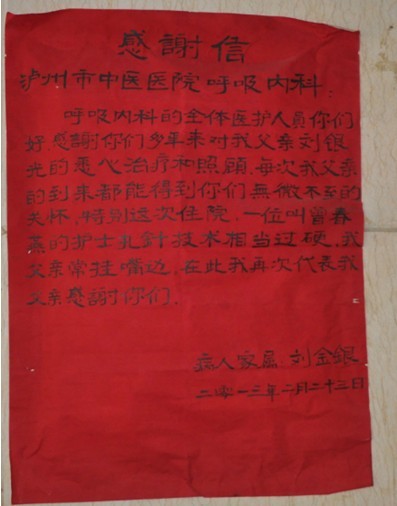 感謝信
泸州市中医医院呼吸内科：
呼吸内科的全体医护人员你们
好感謝你们多年来对我父亲刘银
光的悉心治疗和照顧，每次我父亲
的到来都能得到你们無微不至的
关怀，特别这次住院，一位叫曾春
燕的护士扎針技术相当过硬，我
父亲常挂嘴边，在此我再次代表我
父亲感謝你们．
病人家属：刘金银
二零一三年二月二十三日